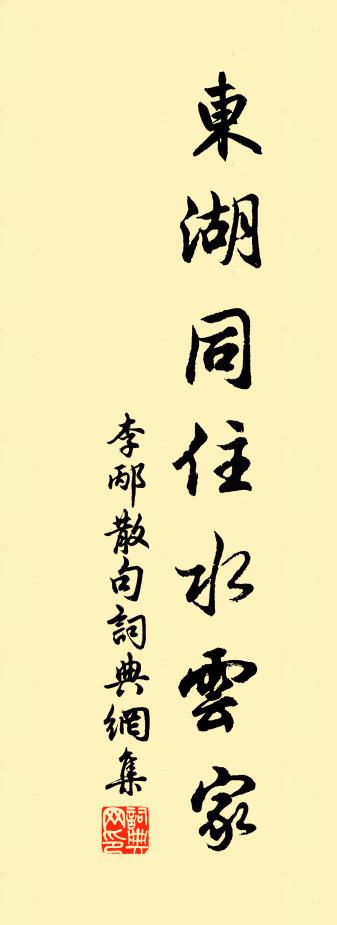 東湖同住水雲家
李邴散句詞典網集
詞典网印